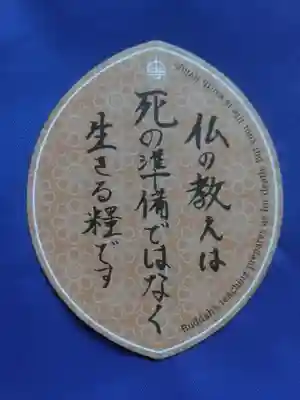 仏の教えは
死の準備ではなく
生きる糧です
Buddah's teaching prepares us for death